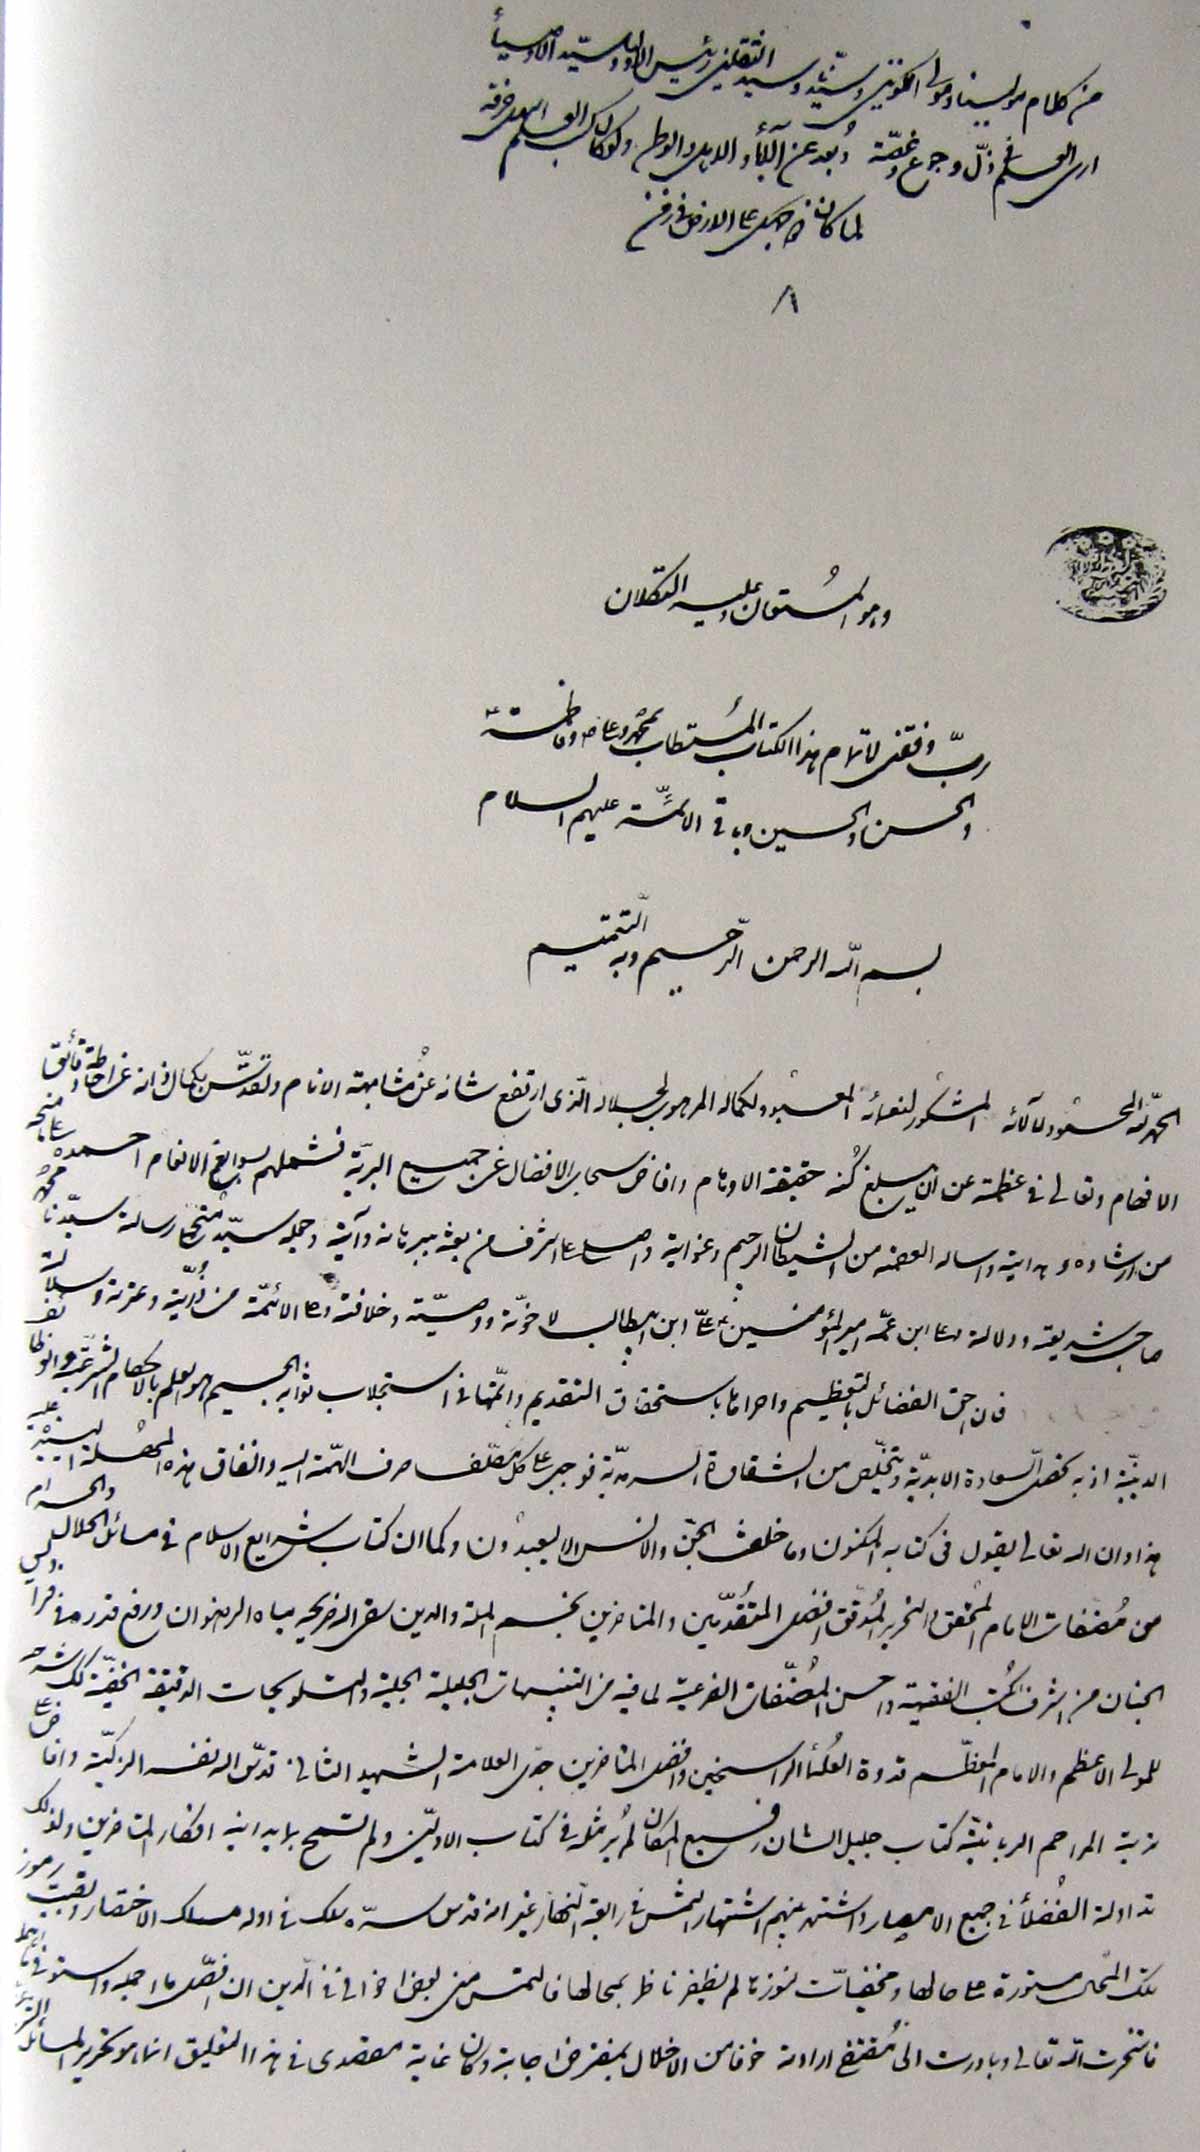 من كلام مولينا ومولى الكونين وسيّد الثقلين رئيس الاولياء وسيّد الاوصياء
ارى العلم فى ذلّ وجوع وغصّة وبُعد عن الآباء والاهل والوطن ولو كان كسب العلم اسهل حرفة
لما كان ذو جهل على الارض فى زمن
٨
وهو المُستعان وعليه التكلان
ربّ وفقنى لاتمام هذا الكتاب المُستطاب بمحمّد وعلى وفاطمة
والحسن والحسين وباقى الائمّة عليهم السلام
بسم الله الرحمن الرّحيم وبه التتميم
الحمد لله المحمود لآلائه المشكور لنعمائه المعبود لكماله المرهوب لجلاله الّذى ارتفع شانه عن مشابهة الانام وتقدّس بكمال ذاته عن احاطة دقائق
الافهام وتعالى فى عظمته عن ان يبلغ كُنه حقيقته الاوهام وافاض سحاب الافضال على جميع البريّة فشملهم سوابغ الانعام احمده على منحه
من ارشاده وهدايته واساله العصمة من الشيطان الرجيم وغوايته واصلى على اشرف من بعثه ببرهانه وآيته وحمله رسالته سيّدنا محمد
صاحب شريعته ودلالته وعلى ابن عمّه اميرالمؤمنين علىّ ابن ابيطالب لاخوّته ووصيّته وخلافته وعلى الائمّة من ذُرّيته وعترته وسلالته
فان احق الفضائل بالتعظيم واحراها باستحقاق التقديم واتمّها فى استجلاب ثوابه الجسيم هو العلم بالاحكام الشرعيّة والوظائف
الدينيّة اذ به تحصل السعادة الابديّة ويتخلّص من الشقاوة السرمديّة فوجب على كل مكلّف صرف الهمّة اليه وانفاق هذه المهلة اليسيرة عليه
هذا وان الله تعالى يقول فى كتابه المكنون وما خلقت الجنّ والانس الا ليعبدون وكما ان كتاب شرايع الاسلام فى مسائل الحلال والحرام
من مُصنفات الامام المحقق والنحرير المُدقق افضل المتقدّمين والمتاخرين نجم الملة والدين سقى الله ضريحه مياه الرضوان ورفع قدره فى فراديس
الجنان من اشرف الكُتب الفقهية واحسن المُصنّفات الفرعيّة لما فيه من التنبيهات الجليلة الجلية والتلويحات الدقيقة الخفيّة كك شرحه
للمولى الاعظم والامام المعظّم قدوة العُلمأ الراسخين وافضل المتاخرين جدّى العلامة الشهيد الثانى قدّس الله نفسه الزكيّة وافاض على
تربته المراحم الربانيّة كتاب جليل الشان رفيع المكان لم يُر مثله فى كتاب الاوليّن ولم تسمح بابدانيه افكار المتاخرين ولذلك
تداوله الفُضلأ فى جميع الامصار واشتهر بينهم اشتهار الشمس فى رابعة النّهار غير انه قدس سرّه سلك فى اوله مسلك الاختصار وبقيت رموز
تلك المحّال مستورة على حالها ومخفيّات كنوزها لم يظفر ناظر بمجالها فالتمس منى بعض اخوانى فى الّدين ان افصّل ما اجمله واستوفى ما اهمله
فاستخرت الله تعالى وبادرت الى مُقتضى ارادته خوفا من الاخلال بمفترض اجابته وكان غاية مقصدى فى هذا التعليق انما هو تحرير المسائل الشرعيّة